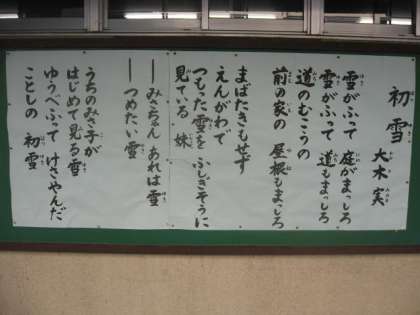 初雪
大木実
雪がふって 庭がまっしろ
雪がふって 道もまっしろ
道のむこうの
前の家の 屋根もまっしろ
まばたきもせず
えんがわで
つもった雪を ふしぎそうに
見ている 妹
――みさちゃん あれは雪
――つめたい雪
うちのみさ子が
はじめて見る雪
ゆうべふって けさやんだ
ことしの 初雪